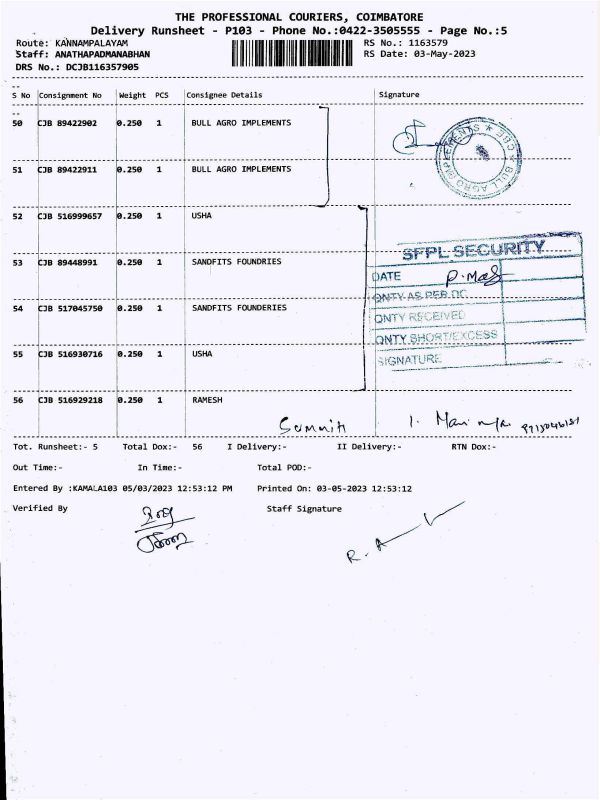 THE PROFESSIONAL COURIERS, COIMBATORE
Delivery Runsheet - P103 - Phone No.:0422-3505555 - Page No.:5
Route: KANNAMPALAYAM RS No.: 1163579
Staff: ANATHAPADMANABHAN RS Date: 03-May-2023
DRS No.: DCJB116357905
S No Consignment No Weight PCS Consignee Details Signature
50 CJB 89422902 0.250 1 BULL AGRO IMPLEMENTS
BULL AGRO IMPLEMENTS ★ CBE ★
51 CJB 89422911 0.250 1 BULL AGRO IMPLEMENTS
52 CJB 516999657 0.250 1 USHA
SFPL SECURITY
53 CJB 89448991 0.250 1 SANDFITS FOUNDRIES
DATE
QNTY AS PER DC
54 CJB 517045750 0.250 1 SANDFITS FOUNDERIES
QNTY RECEIVED
QNTY SHORT/EXCESS
55 CJB 516930716 0.250 1 USHA
SIGNATURE
56 CJB 516929218 0.250 1 RAMESH
Tot. Runsheet:- 5 Total Dox:- 56 I Delivery:- II Delivery:- RTN Dox:-
Out Time:- In Time:- Total POD:-
Entered By :KAMALA103 05/03/2023 12:53:12 PM Printed On: 03-05-2023 12:53:12
Verified By Staff Signature